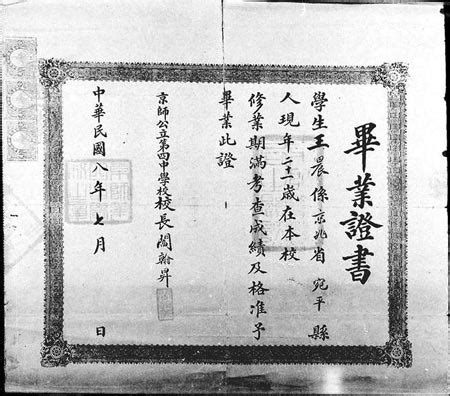 畢業證書
學生王農係京兆省宛平縣
人現年二十一歲在本校
修業期滿考查成績及格准予
畢業此證
京師公立第四中學校校長閻翰昇
中華民國八年七月 日